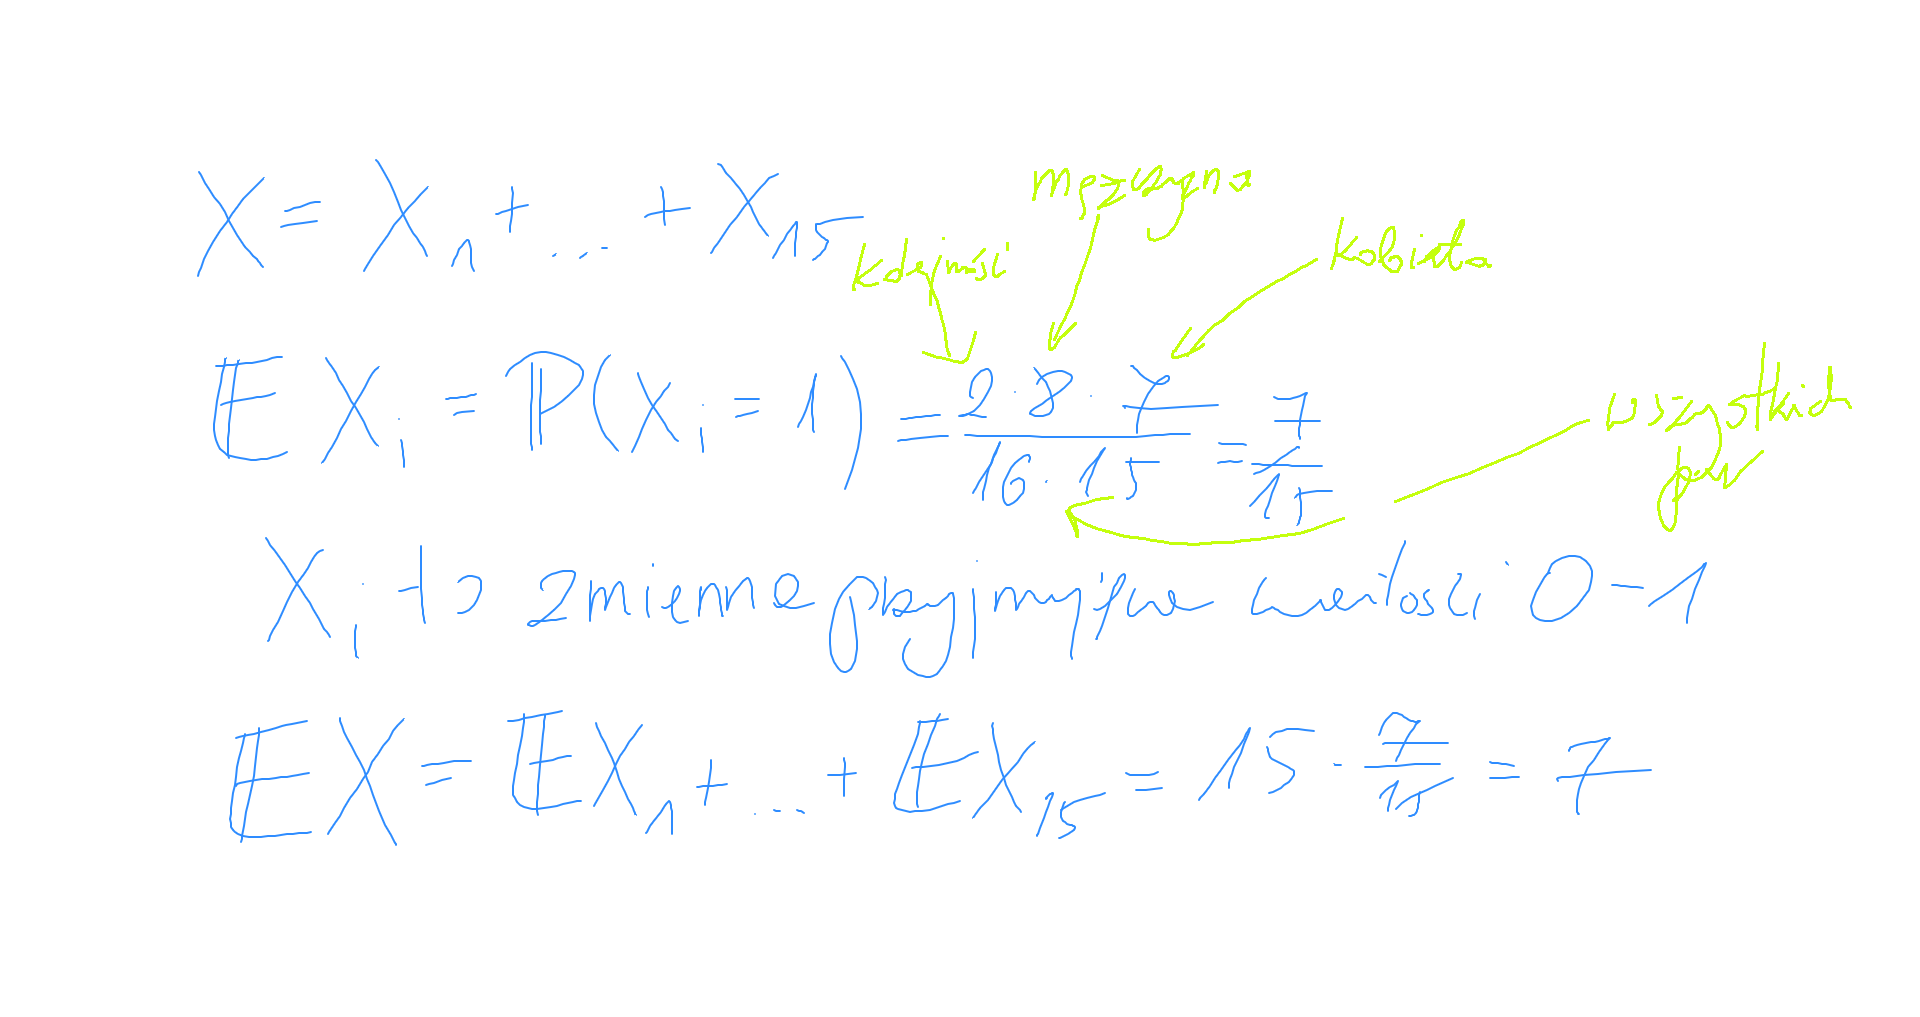 mężczyzna
X = X₁ + ... + X₁₅
kolejność
kobieta
𝔼Xᵢ = ℙ(Xᵢ = 1) = 2·8·7 / 16·15 = 7/15
wszystkich
par
Xᵢ to zmienne przyjmujące wartości 0-1
𝔼X = 𝔼X₁ + ... + 𝔼X₁₅ = 15 · 7/15 = 7